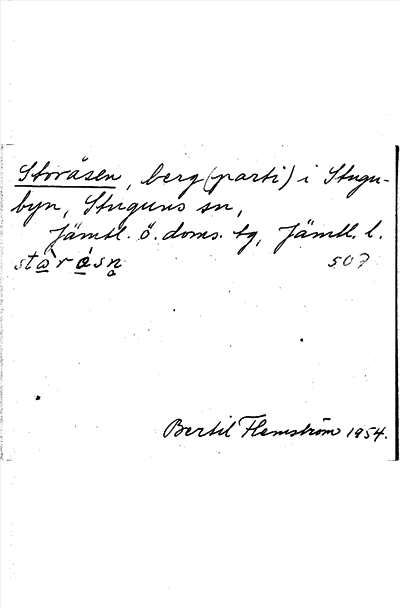 Storåsen, berg(parti) i Stugu-
byn, Stuguns sn,
Jämtl. ö. doms. tg, Jämtl. l.
507
Bertil Flemström 1954.